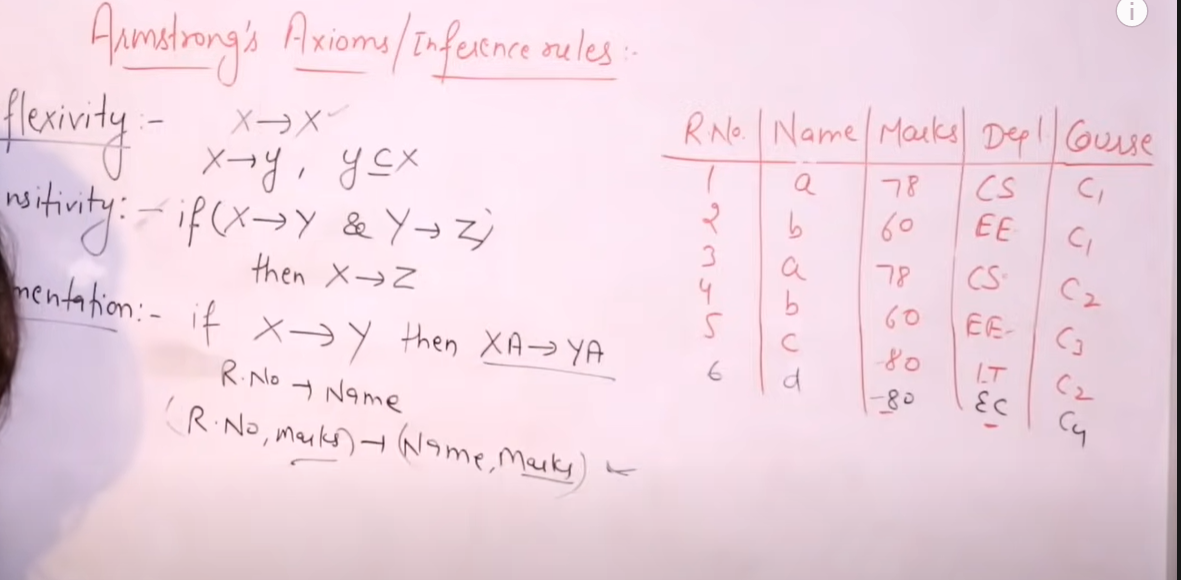 Armstrong's Axioms/Inference rules:-
flexivity:- X→X
X→y, y⊆X
nsitivity:- if (X→Y & Y→Z)
then X→Z
mentation:- if X→Y then XA→YA
R.No → Name
(R.No, marks) → (Name, Marks)
R.No. Name Marks Dept Course
1 a 78 CS C1
2 b 60 EE C1
3 a 78 CS C2
4 b 60 EE C3
5 c 80 IT C2
6 d 80 EC C4
i